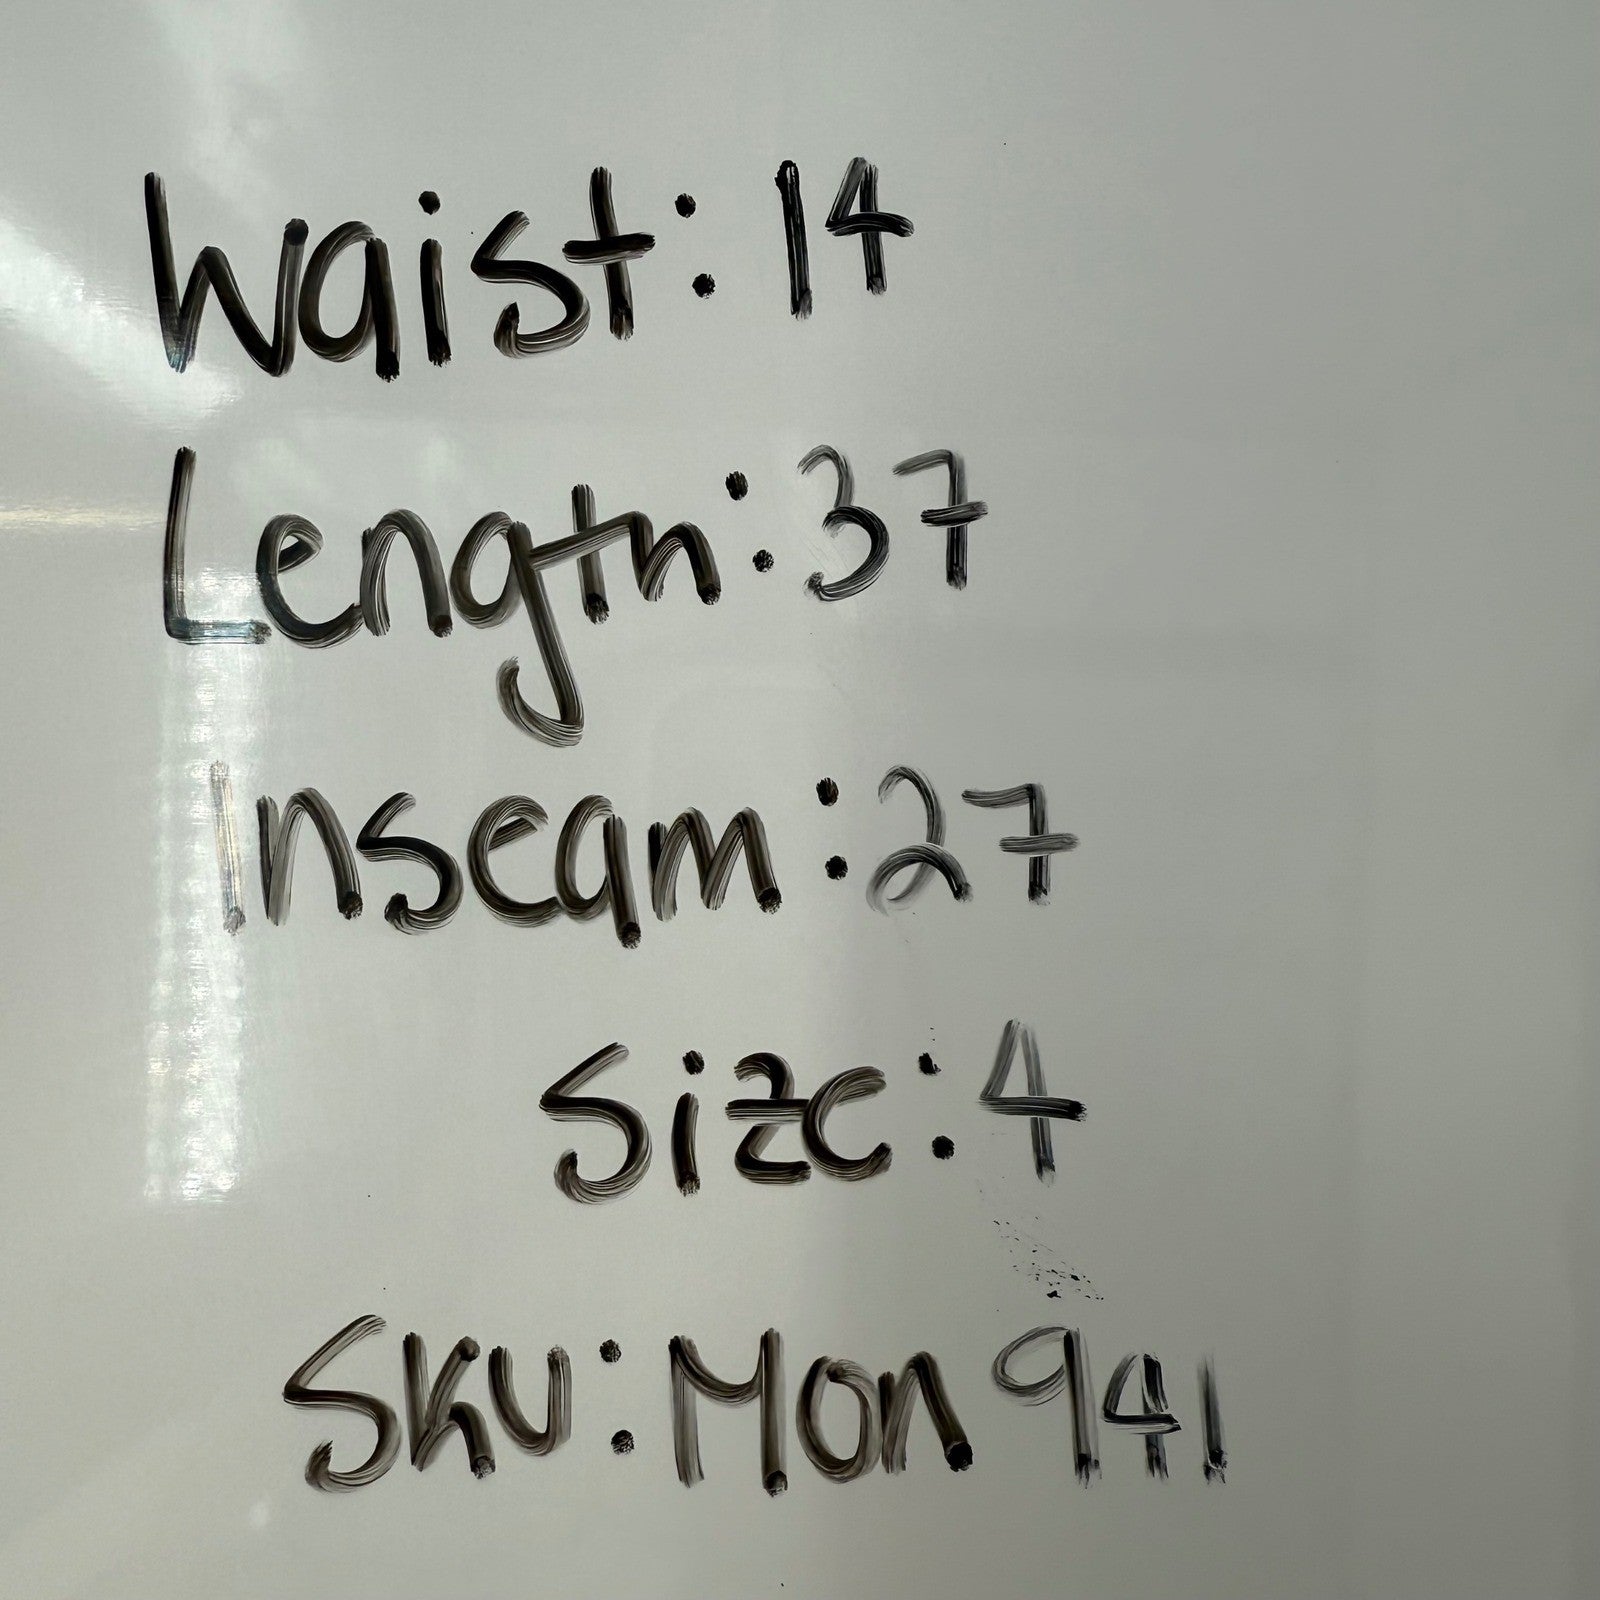 Waist: 14
Length: 37
Inseam: 27
Size: 4
Sku: Mon 941